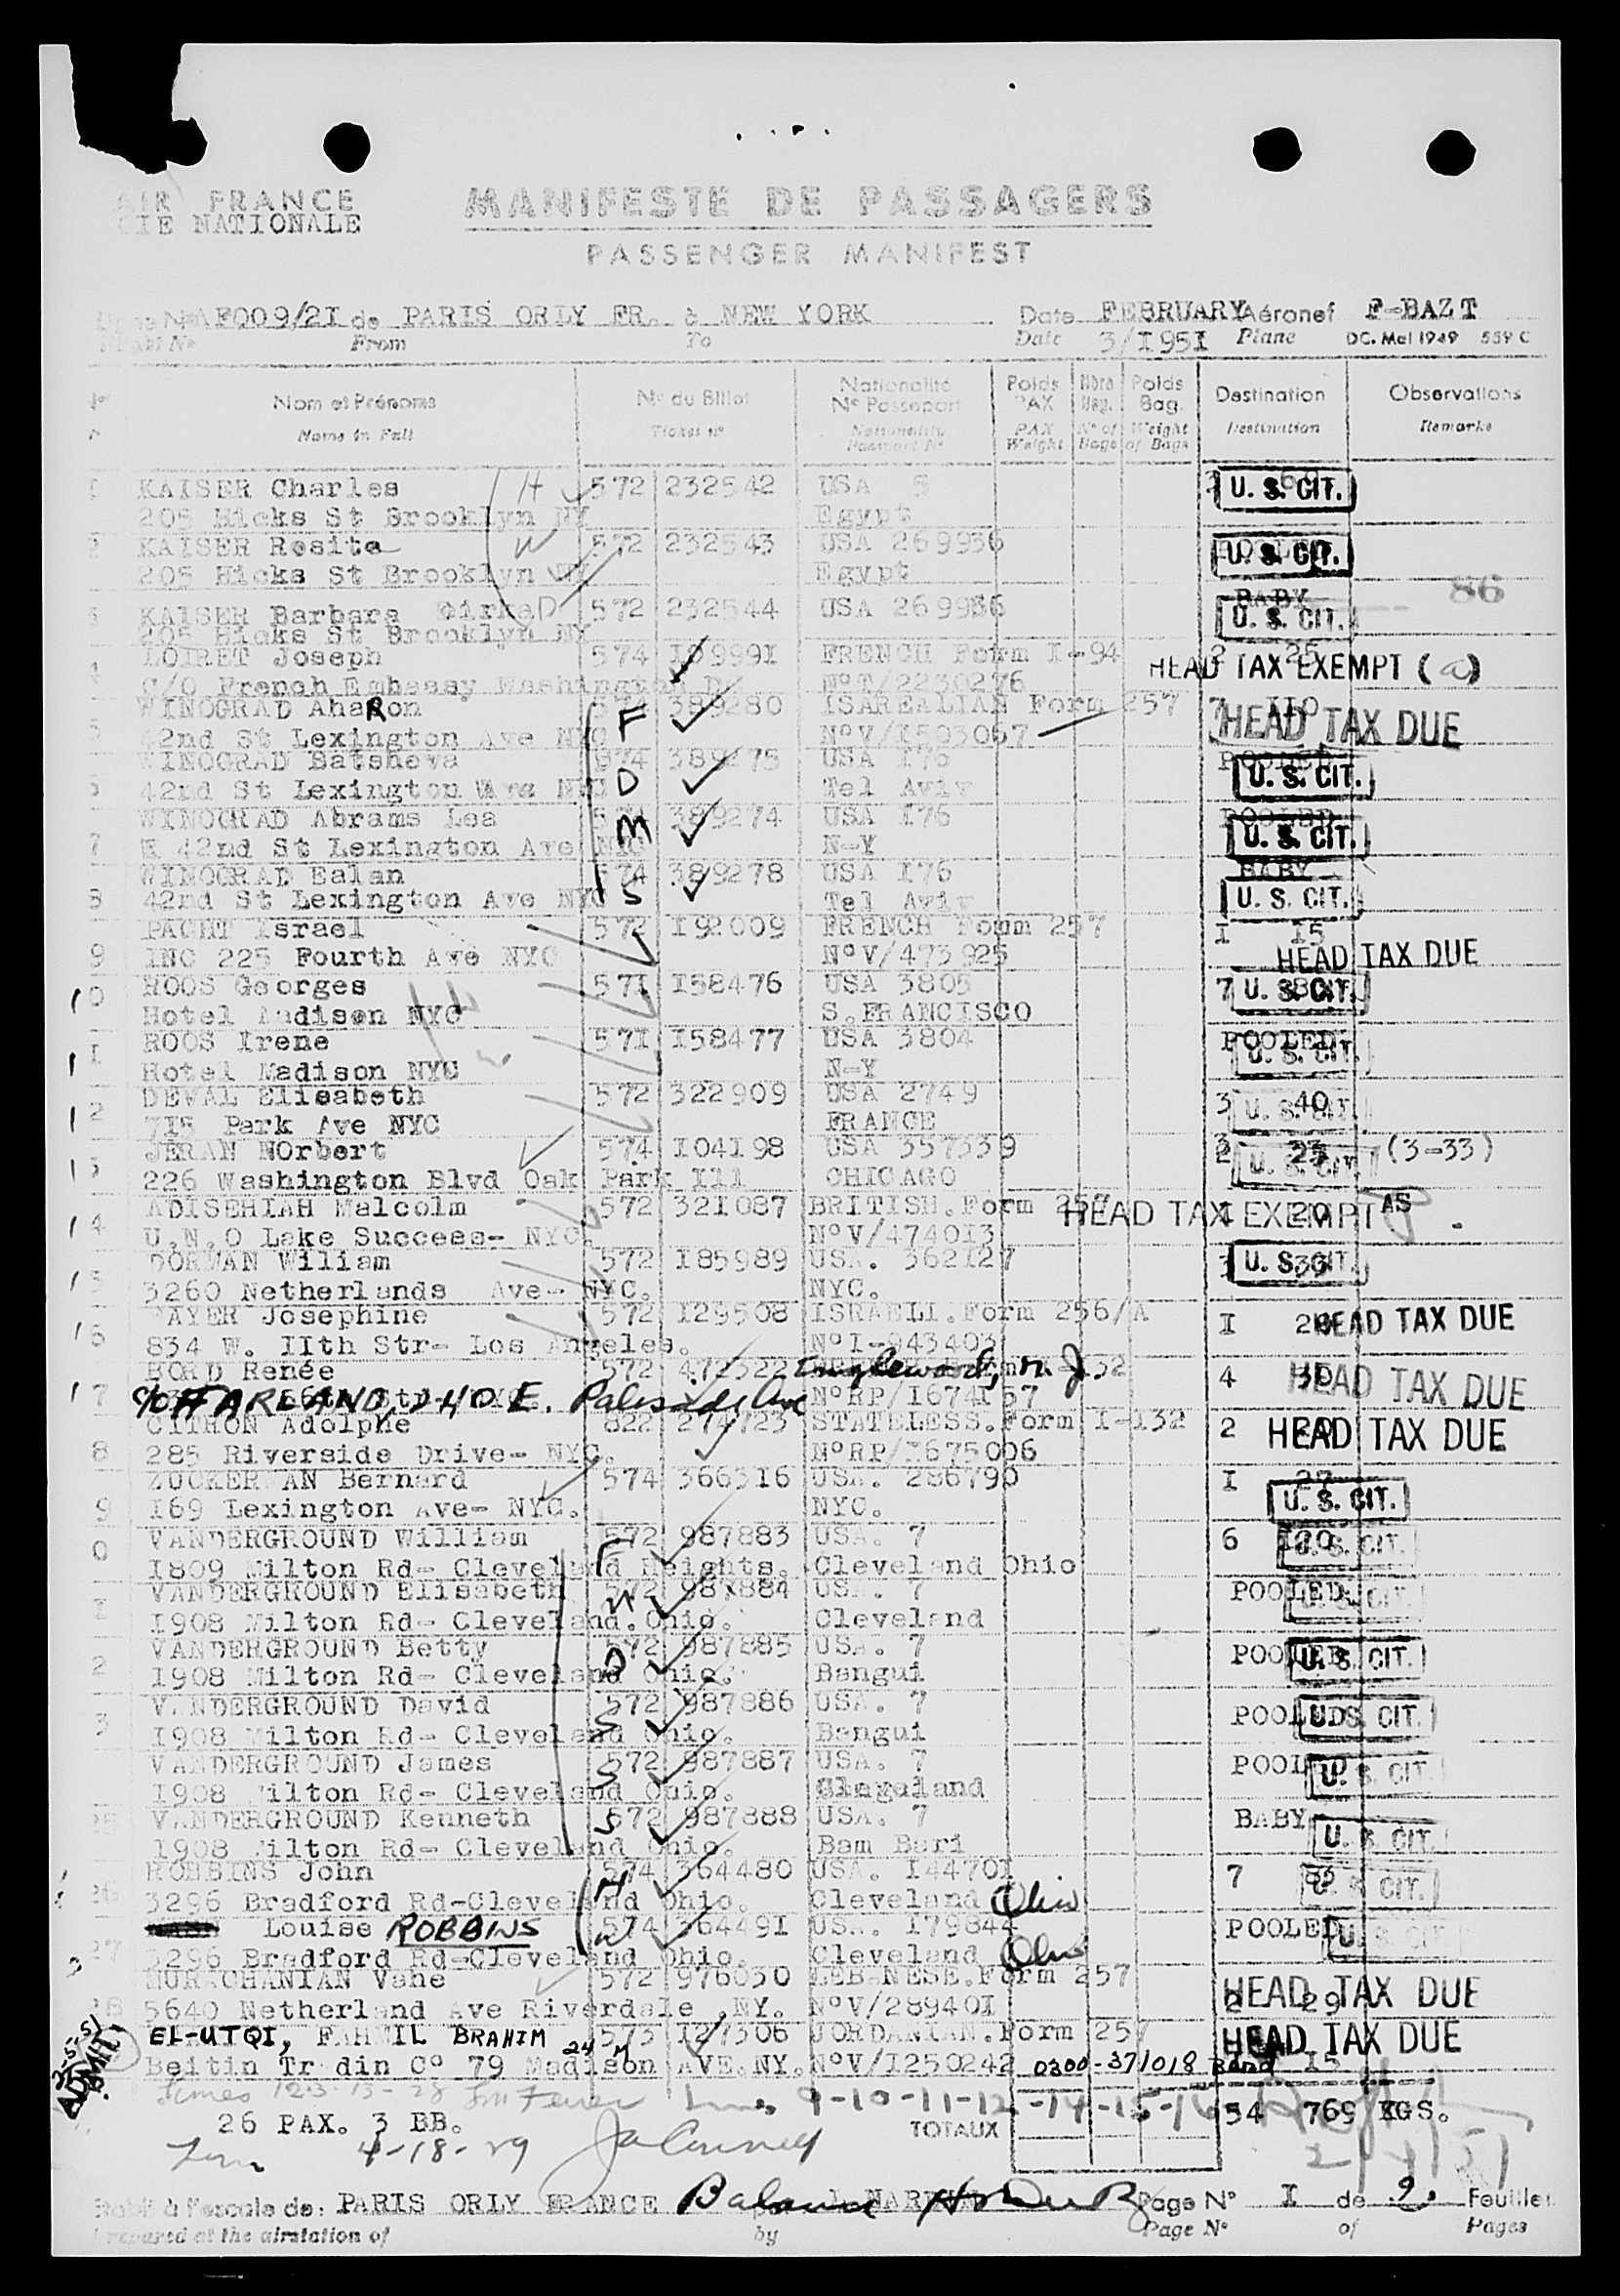 AIR FRANCE
CIE NATIONALE
MANIFESTE DE PASSAGERS
PASSENGER MANIFEST
AF009/2I de PARIS ORLY FR. à NEW YORK Date FEBRUARY Aéronef F-BAZT
From To Date 3/I95I Plane DC. Mai 1949 559 C
Nom et Prénoms N° du Billet Nationalité N° Passeport Poids PAX Nbre Bag. Poids Bag. Destination Observations
Name in Full Ticket n° Nationality Passport N° PAX Weight N° of Bags Weight of Bags Destination Remarks
KAISER Charles H 572 232542 USA 5 3 U. S. CIT.
205 Hicks St Brooklyn NY Egypt
KAISER Rosita W 572 232543 USA 269936 U. S. CIT.
205 Hicks St Brooklyn NY Egypt
KAISER Barbara D 572 232544 USA 269936 BABY U. S. CIT. 86
205 Hicks St Brooklyn NY
LOIRET Joseph 574 I0999I FRENCH Form I-94 2 25 HEAD TAX EXEMPT (a)
C/O French Embassy Washington N°T/2230276
WINOGRAD AhaRon F 389280 ISAREALIAN Form 257 7 II0 HEAD TAX DUE
42nd St Lexington Ave NYC N°V/I503067
WINOGRAD Batsheva D 574 389275 USA I76 POOLED U. S. CIT.
42nd St Lexington Ave NYC Tel Aviv
WINOGRAD Abrams Lea M 574 389274 USA I76 POOLED U. S. CIT.
E 42nd St Lexington Ave NYC N-Y
WINOGRAD Ealan S 574 389278 USA I76 BABY U. S. CIT.
42nd St Lexington Ave NYC Tel Aviv
PACHT Israel 572 I92009 FRENCH Foum 257 I I5 HEAD TAX DUE
9 INC 225 Fourth Ave NYC N°V/473925
ROOS Georges 57I I58476 USA 3805 7 U. S. CIT.
10 Hotel Madison NYC S.FRANCISCO
ROOS Irene 57I I58477 USA 3804 POOLED U. S. CIT.
1I Hotel Madison NYC N-Y
DEVAL Elisabeth 572 322909 USA 2749 3 40 U. S. CIT.
12 7I5 Park Ave NYC FRANCE
JERAN NOrbert 574 I04I98 USA 357339 2 23 U. S. CIT. (3-33)
13 226 Washington Blvd Oak Park Ill CHICAGO
ADISEHIAH Malcolm 572 32I087 BRITISH.Form 257 I 20 HEAD TAX EXEMPT AS
14 U.N.O Lake Success- NYC. N°V/4740I3
DORMAN Wiliam 572 I85989 USA. 362I27 3 U. S. CIT.
15 3260 Netherlands Ave- NYC. NYC.
AYER Josephine 572 I29508 ISRAELI.Form 256/A I HEAD TAX DUE
16 834 W. IIth Str- Los Angeles. N°I-943403
BORD Renée 572 472522 Englewood, N. J. 4 HEAD TAX DUE
17 C/O FFARLAND, 240 E. Palisade Ave N°RP/I674I57
CITRON Adolphe 822 274723 STATELESS.Form I-I32 2 20 HEAD TAX DUE
8 285 Riverside Drive- NYC. N°RP/I675006
ZUCKERMAN Bernard 574 3663I6 USA. 286790 I 27 U. S. CIT.
9 I69 Lexington Ave- NYC. NYC.
VANDERGROUND William F 572 987883 USA. 7 6 U. S. CIT.
0 I809 Milton Rd- Cleveland Heights. Cleveland Ohio
VANDERGROUND Elisabeth W 572 987884 USA. 7 POOLED U. S. CIT.
I I908 Milton Rd- Cleveland.Ohio. Cleveland
VANDERGROUND Betty D 572 987885 USA. 7 POOLED U. S. CIT.
2 I908 Milton Rd- Cleveland Ohio. Bangui
VANDERGROUND David S 572 987886 USA. 7 POOLED U. S. CIT.
3 I908 Milton Rd- Cleveland Ohio. Bangui
VANDERGROUND James S 572 987887 USA. 7 POOLED U. S. CIT.
I908 Milton Rd- Cleveland Ohio. Cleveland
VANDERGROUND Kenneth S 572 987888 USA. 7 BABY U. S. CIT.
25 I908 Milton Rd- Cleveland Ohio. Bam Bari
ROBBINS John H 574 364480 USA. I4470I 7 U. S. CIT.
26 3296 Bradford Rd-Cleveland Ohio. Cleveland Ohio
Louise ROBBINS W 574 36449I USA. I79844 POOLED U. S. CIT.
27 3296 Bradford Rd-Cleveland Ohio. Cleveland Ohio
Vahe 572 976030 LEBANESE.Form 257 2 29 HEAD TAX DUE
28 5640 Netherland Ave Riverdale .NY. N°V/28940I
EL-UTQI, FAHMIL BRAHIM 24 M 573 I27306 JORDANIAN.Form 257 HEAD TAX DUE
Beitin Tradin C° 79 Madison AVE.NY. N°V/I250242 0300-371018 I5
ADMIT.
9-10-11-12-14-15-16
26 PAX. 3 BB. TOTAUX 54 769 KGS.
4-18-29
Etabli à l'escale de: PARIS ORLY FRANCE Page N° I de 2. Feuillet
Prepared at the airstation of by Page N° of Pages